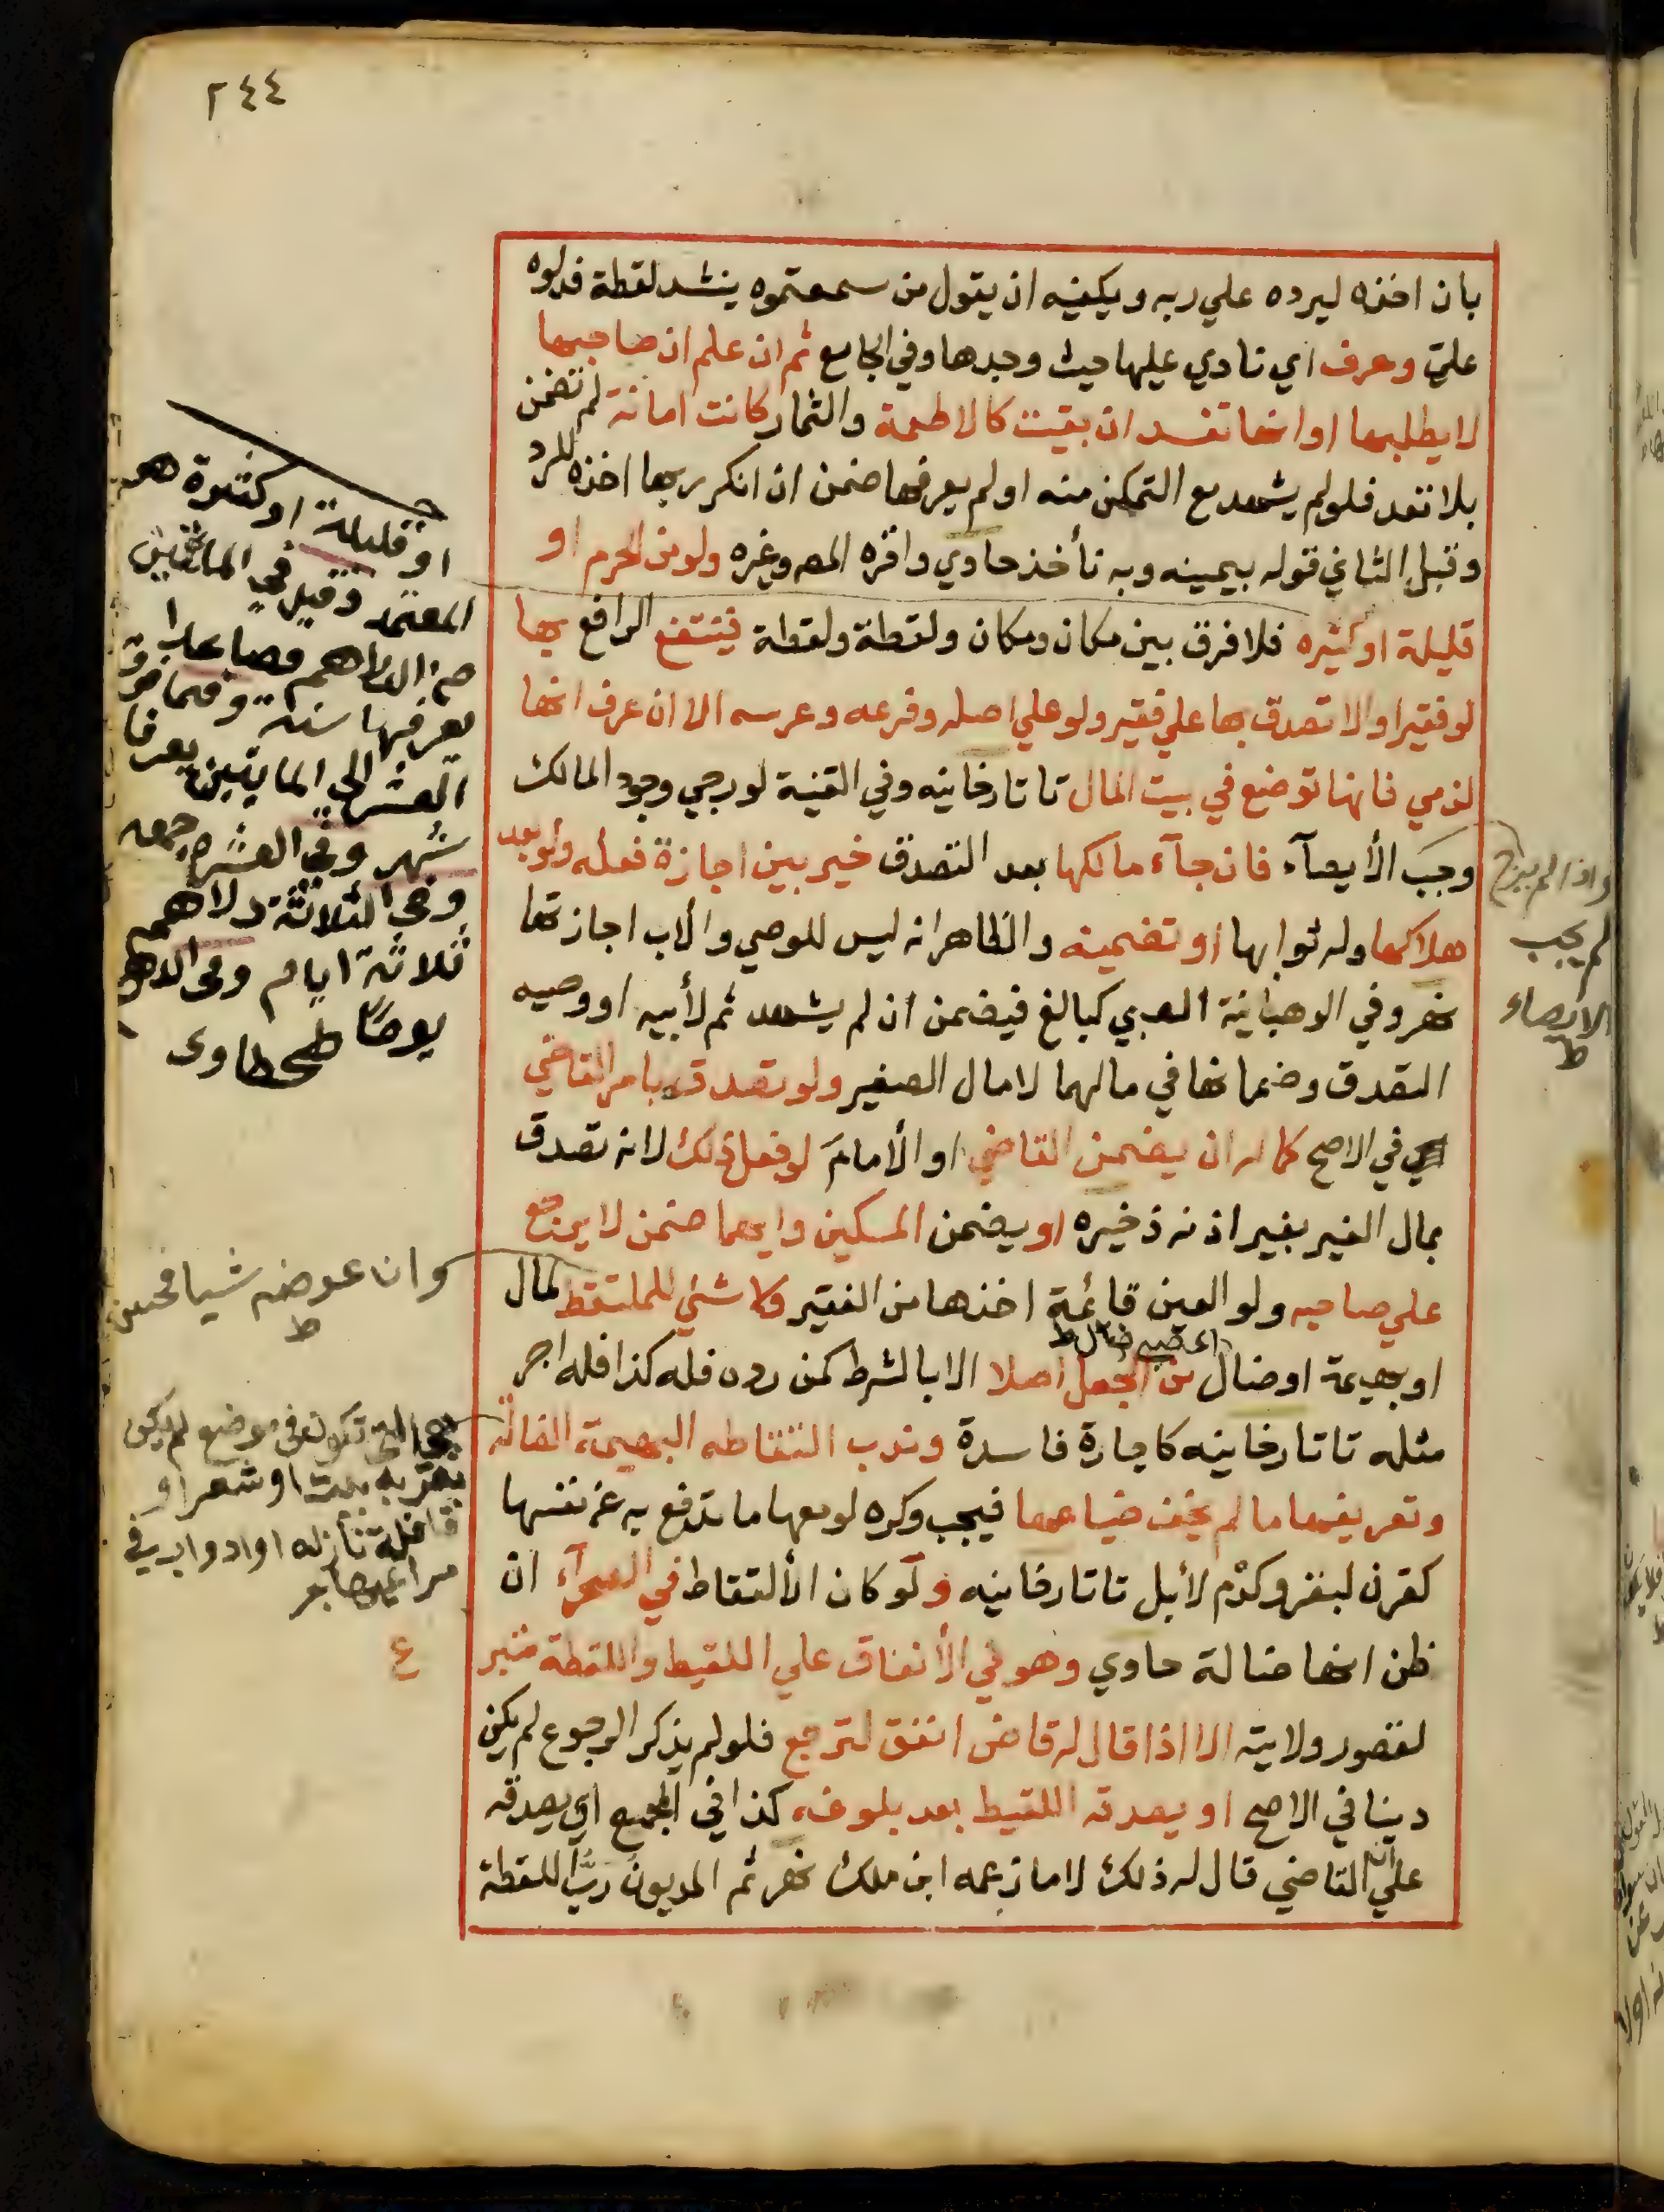 ٢٤٤
بان اخذه ليرده علي ربه ويكفيه ان يقول من سمعتموه ينشد لقطة فدلوه
عليّ وعرف اي نادي عليها حيث وجدها وفي الجامع ثم ان علم ان صاحبها
لا يطلبها او انها تفسد ان بقيت كالاطعمة والثمار كانت امانة لم تضمن
بلا تعد فلو لم يشهد مع التمكن منه او لم يعرفها ضمن ان انكر ربها اخذه للرد
وقبل الثاني قوله بيمينه وبه نأخذ حاوي واقره المصـ وغيره ولو من الحرم او
قليلة او كثيره فلا فرق بين مكان ومكان ولقطة ولقطة فينتفع الرافع بها
لو فقيرا والا تصدق بها علي فقير ولو علي اصله وفرعه وعرسه الا ان عرف انها
لذمي فانها توضع في بيت المال تاتارخانيه وفي القنية لو رجي وجود المالك
وجَبَ الأيصآء فان جآء مالكها بعد التصدق خير بين اجازة فعله ولو بعد
هلاكها وله ثوابها او تضمينه والظاهر انه ليس للوصي والأب اجازتها
نهر وفي الوهبانية الصبي كبالغ فيضمن ان لم يشهد ثم لأبيه او وصيه
التصدق وضمانها في مالهما لا مال الصغير ولو تصدق بامر القاضي
في الاصح كما له ان يضمن القاضي او الأمامَ لو فعل ذلك لانه تصدق
بمال الغير بغير اذنه ذخيره او يضمن المسكين وايهما ضمن لا يرجع
علي صاحبه ولو العين قائمة اخذها من الفقير ولا شئي للملتقط لمال
او بهيمة او ضال من الجعل اصلا الا بالشرط كمن رده فله كذا فله اجر
مثله تاتارخانيه كاجارة فاسدة وندب التقاطه البهيمة الضالة
وتعريفها ما لم يخف ضياعها فيجب وكره لو معها ما تدفع به عن نفسها
كقرن لبقر وكدْم لأبل تاتارخانيه ولو كان الألتقاط في الصحرآء ان
ظن انها ضالة حاوي وهو في الأنفاق علي اللقيط واللقطة متبرع
لقصور ولايته الا اذا قال له قاض انفق لترجع فلو لم يذكر الرجوع لم يكن
دينا في الاصح او يصدقه اللقيط بعد بلوغه كذا في المجمع اي يصدقه
علي ان القاضي قال له ذلك لا ما زعمه ابن ملك نهر ثم المديون ربُّ اللقطة
او قليلة او كثيرة هو
المعتمد وقيل في المائتين
من الدراهم فصاعدا
يعرفها سنة وفيما فوق
العشر الي المايتين يعرفها
شهر وفي العشر جمعه
وفي الثلاثة دراهم
ثلاثة ايام وفي الدرهم
يومًا طحطاوى
واذا لم يرج
لم يجب
الايصاء
ط
وان عوضه شيا فحسن
ط
هي التي تكون في موضع لم يكن
بقربه بيت او شعر او
قافلة نازله او ادواب في
مراعيها بحر